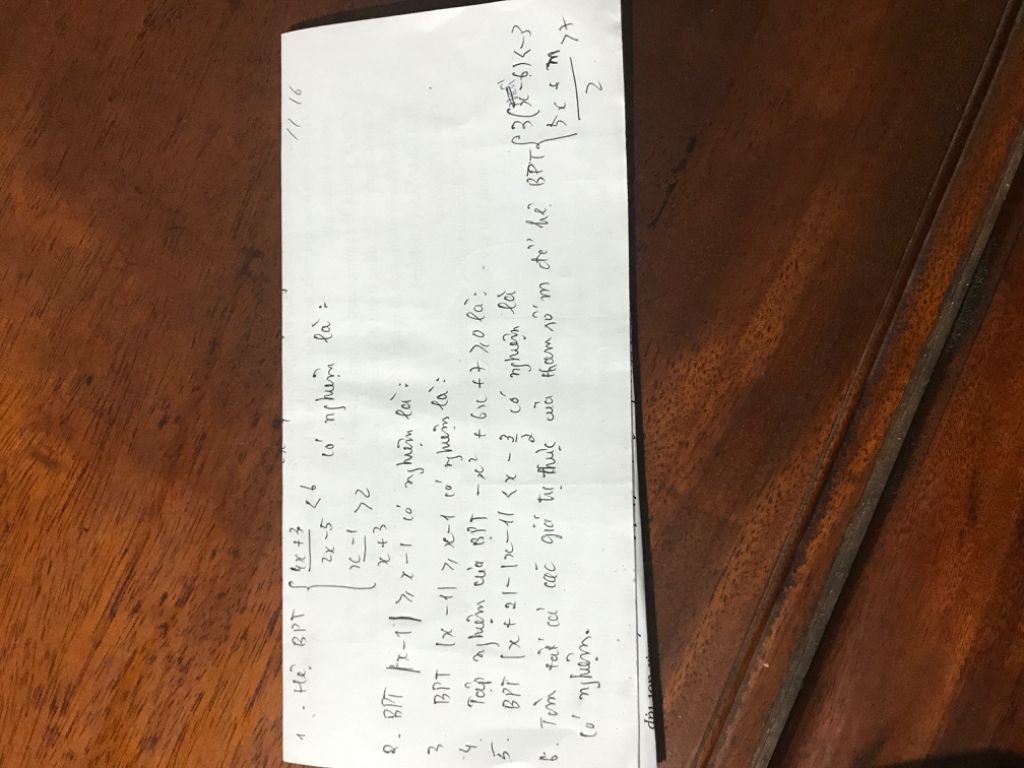 11 16
1. Hệ BPT { (4x+3)/(2x-5) < 6
(x-1)/(x+3) > 2 có nghiệm là:
2. BPT |x-1| ≥ x-1 có nghiệm là:
3. BPT |x-1| ≥ x-1 có nghiệm là:
4. Tập nghiệm của BPT -x² + 6x + 7 ≥ 0 là:
5. BPT |x+2| - |x-1| < x - 3/2 có nghiệm là
6. Tìm tất cả các giá trị thực của tham số m để hệ BPT { 3(x-6) < -3
(5x+m)/2 > 7
có nghiệm.